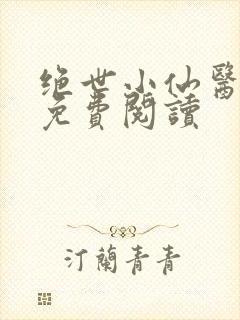 绝世小仙醫
免費閱讀
汀蘭青青